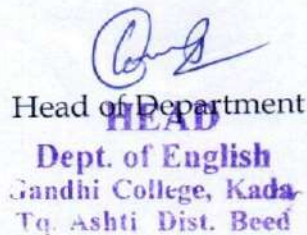 Head of Department
HEAD
Dept. of English
Gandhi College, Kada
Tq. Ashti Dist. Beed